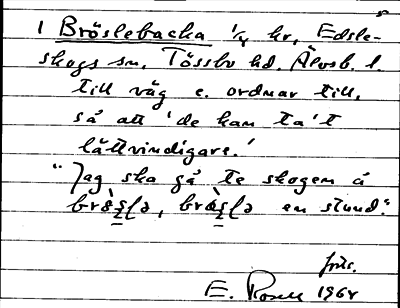 1 Bröslebacka 1/4 hr, Edsle-
skogs sn, Tössbo hd. Älvsb. l.
till väg e. ordnar till,
så att 'de kan ta't
lättvindigare.'
"Jag ska gå te skogen å
en stund."
E. 1964